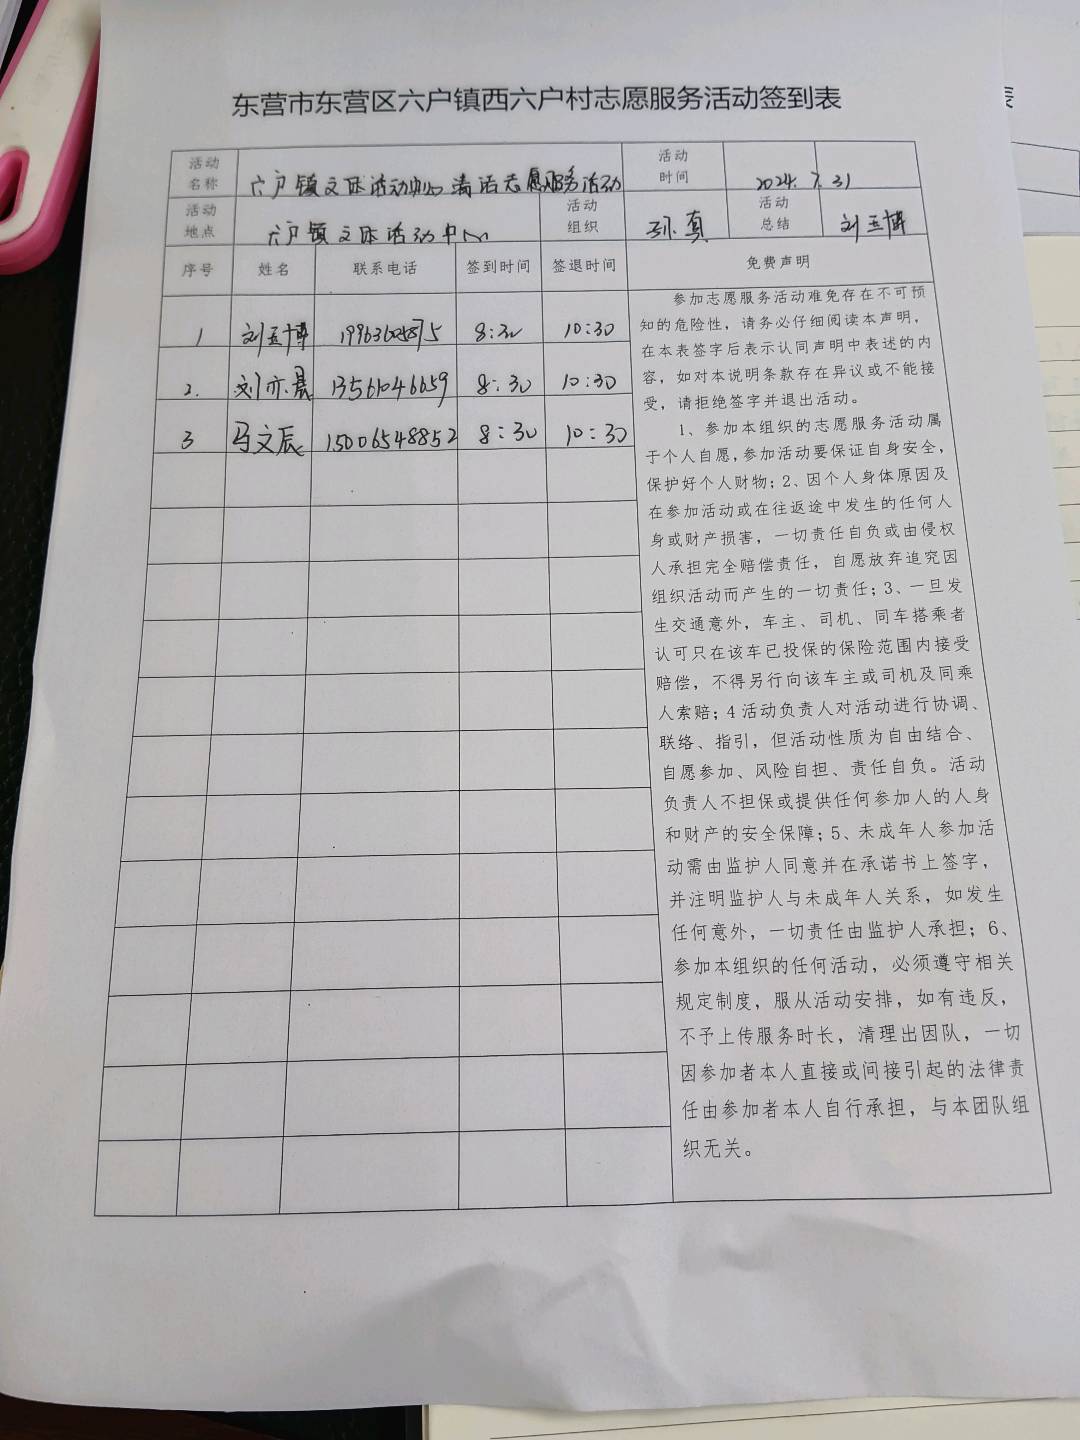 东营市东营区六户镇西六户村志愿服务活动签到表
活动名称 六户镇文体活动中心清洁志愿服务活动 活动时间 2024.7.31
活动地点 六户镇文体活动中心 活动组织 孙真 活动总结 刘玉博
序号 姓名 联系电话 签到时间 签退时间 免费声明
1 刘玉博 8:30 10:30
2. 刘亦晨 13561046659 8:30 10:30
3 马文辰 15006548852 8:30 10:30
参加志愿服务活动难免存在不可预
知的危险性，请务必仔细阅读本声明，
在本表签字后表示认同声明中表述的内
容，如对本说明条款存在异议或不能接
受，请拒绝签字并退出活动。
1、参加本组织的志愿服务活动属
于个人自愿，参加活动要保证自身安全，
保护好个人财物；2、因个人身体原因及
在参加活动或在往返途中发生的任何人
身或财产损害，一切责任自负或由侵权
人承担完全赔偿责任，自愿放弃追究因
组织活动而产生的一切责任；3、一旦发
生交通意外，车主、司机、同车搭乘者
认可只在该车已投保的保险范围内接受
赔偿，不得另行向该车主或司机及同乘
人索赔；4活动负责人对活动进行协调、
联络、指引，但活动性质为自由结合、
自愿参加、风险自担、责任自负。活动
负责人不担保或提供任何参加人的人身
和财产的安全保障；5、未成年人参加活
动需由监护人同意并在承诺书上签字，
并注明监护人与未成年人关系，如发生
任何意外，一切责任由监护人承担；6、
参加本组织的任何活动，必须遵守相关
规定制度，服从活动安排，如有违反，
不予上传服务时长，清理出因队，一切
因参加者本人直接或间接引起的法律责
任由参加者本人自行承担，与本团队组
织无关。
表